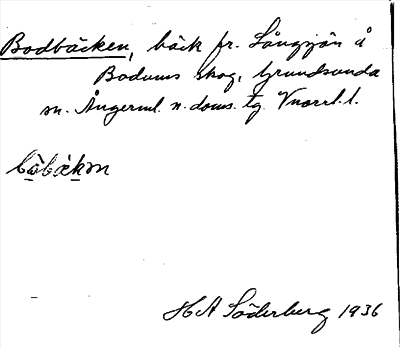 Bodbäcken, bäck fr. Långsjön å
Bodums skog, Grundsunda
sn. Ångerml. n. doms. tg. Vnorrl. l.
bòbækɷn
H A Söderberg 1936